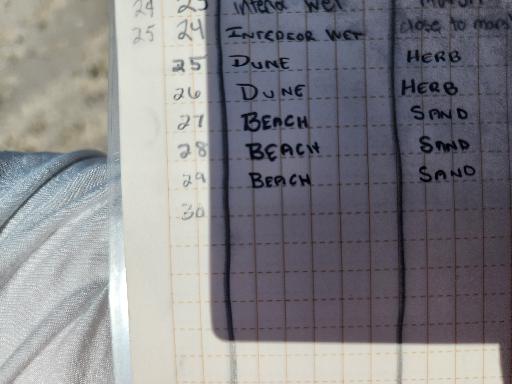 24 23 Interd Wet
25 24 INTERDOR WET close to mars
25 DUNE HERB
26 DUNE HERB
27 BEACH SAND
28 BEACH SAND
29 BEACH SAND
30